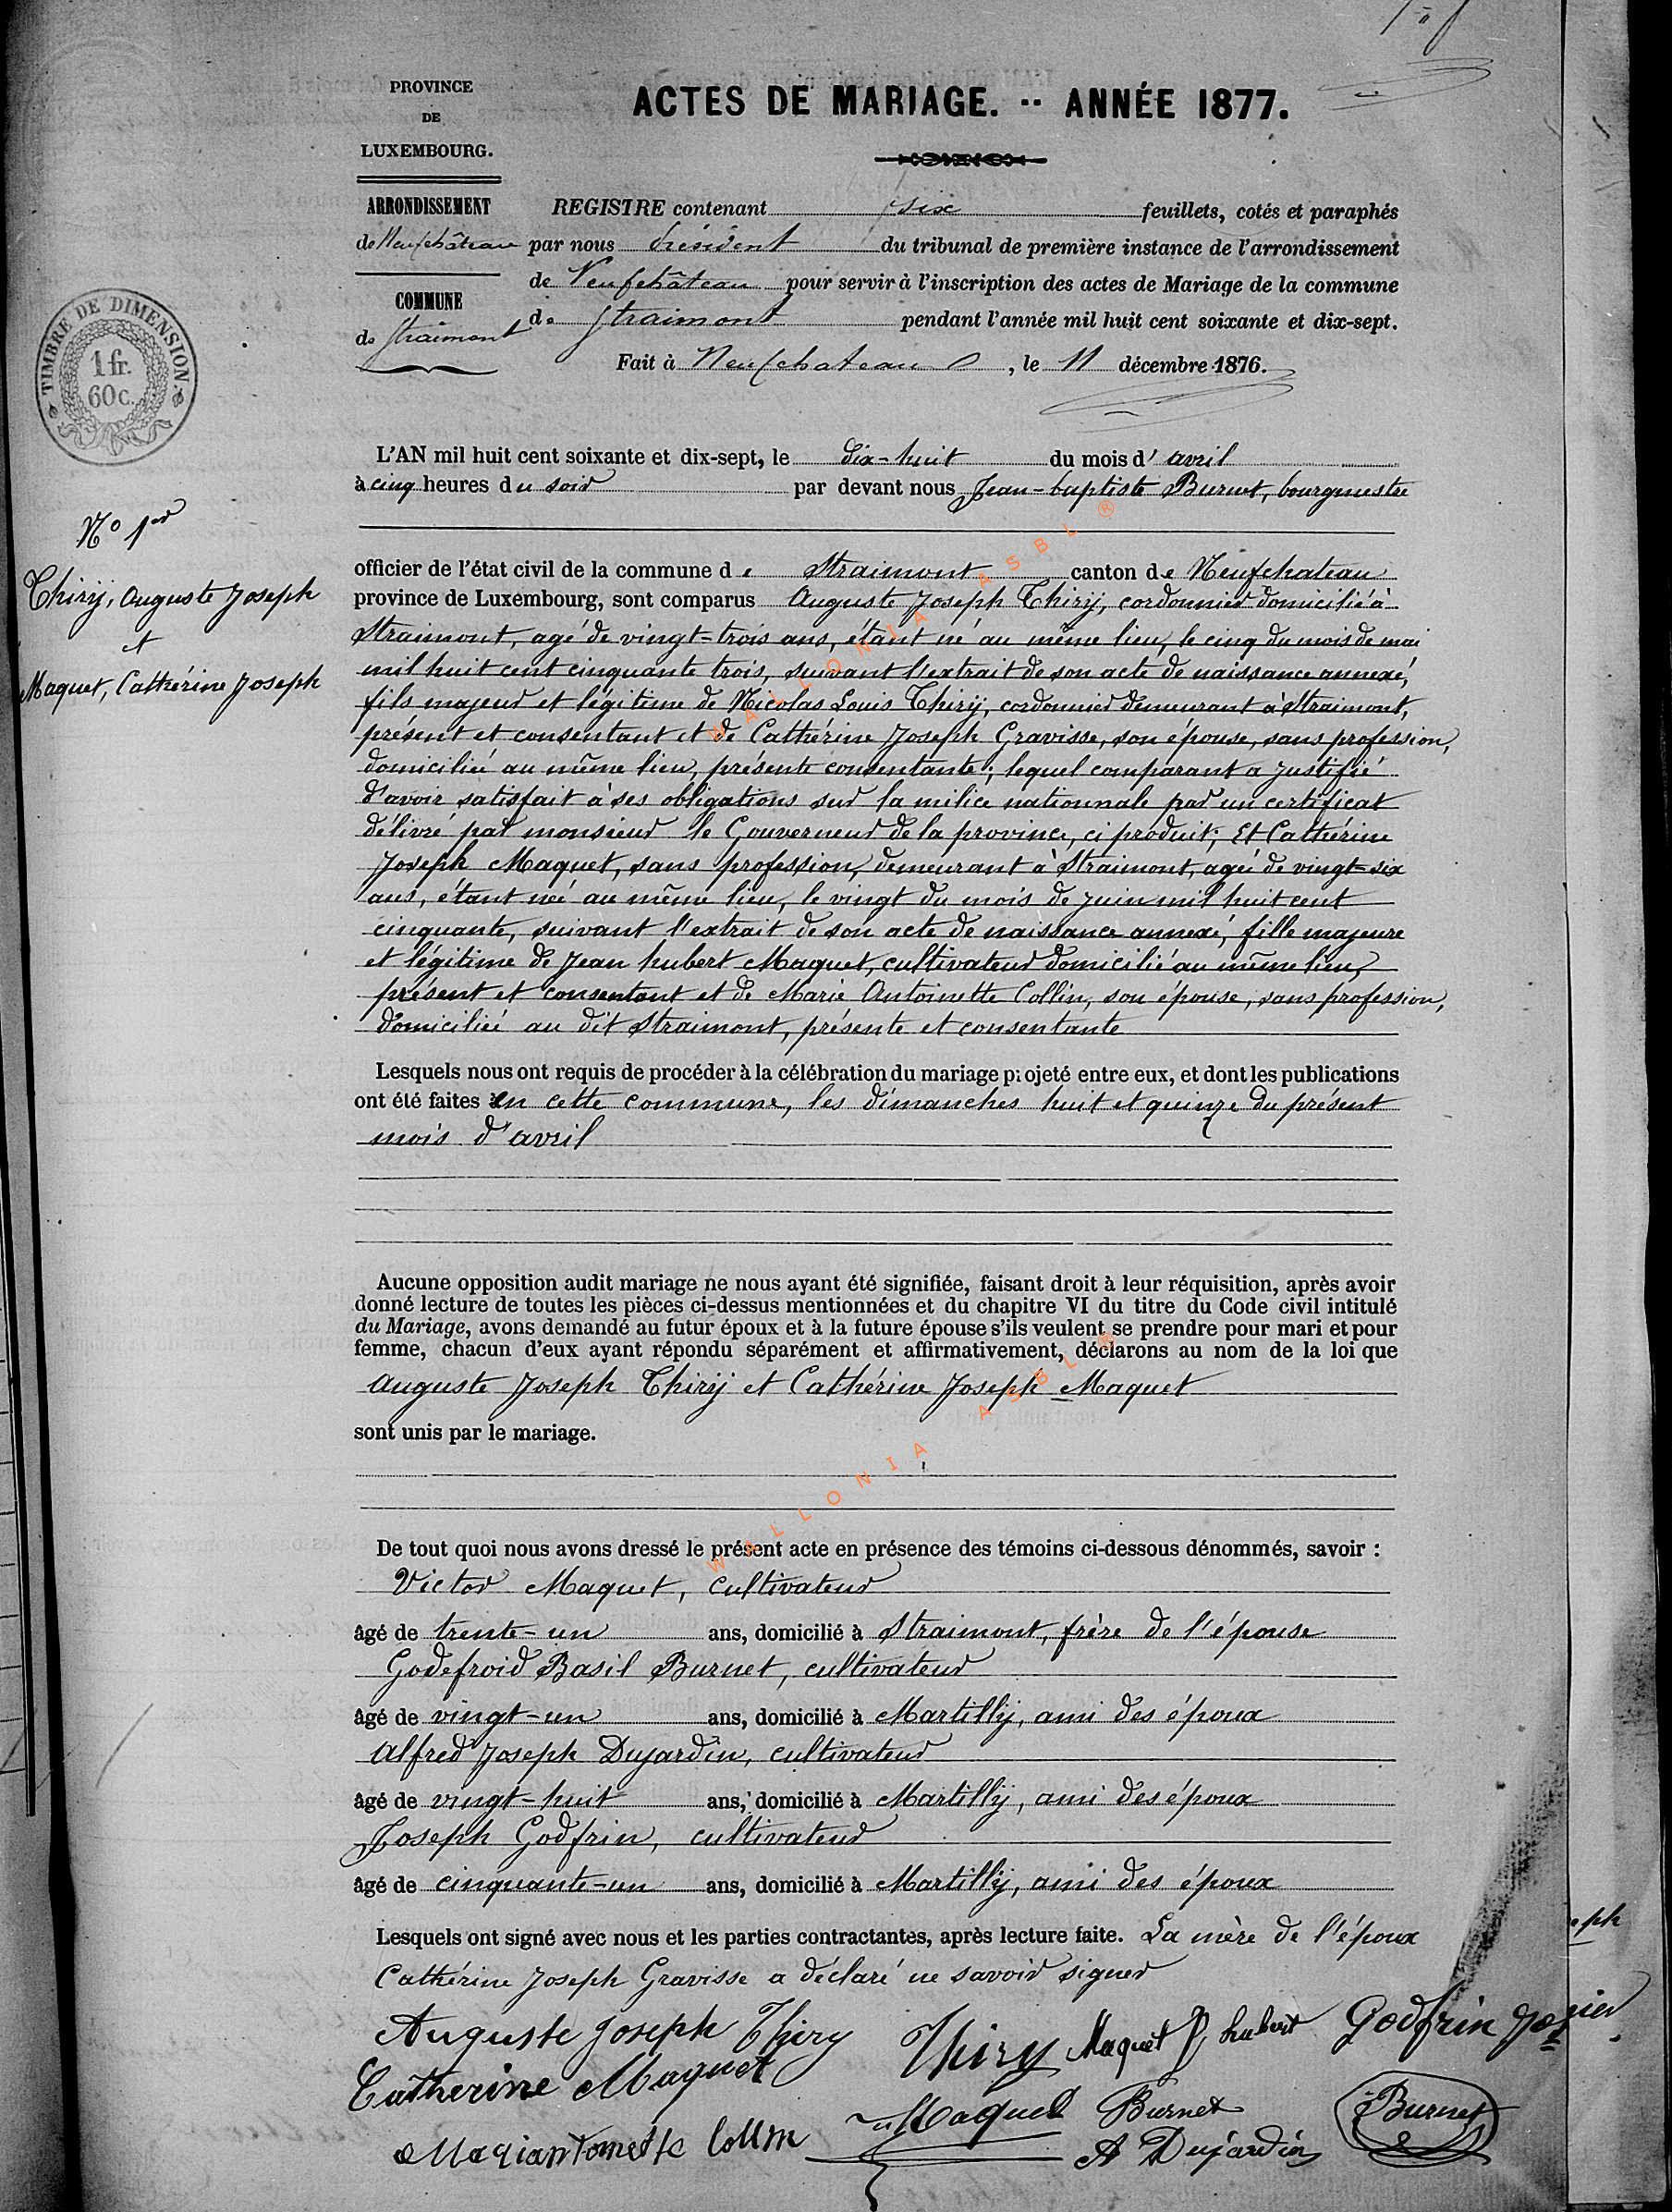 PROVINCE
DE
LUXEMBOURG.
ACTES DE MARIAGE. -- ANNÉE 1877.
ARRONDISSEMENT
de Neufchâteau
COMMUNE
de Straimont
REGISTRE contenant six feuillets, cotés et paraphés
par nous Président du tribunal de première instance de l'arrondissement
de Neufchâteau pour servir à l'inscription des actes de Mariage de la commune
de Straimont pendant l'année mil huit cent soixante et dix-sept.
Fait à Neufchateau, le 11 décembre 1876.
TIMBRE DE DIMENSION
1 fr.
60 c.
L'AN mil huit cent soixante et dix-sept, le dix-huit du mois d'avril
à cinq heures du soir par devant nous Jean-baptiste Burnet, bourgmestre
No 1er
Thirÿ, Auguste Joseph
et
Maquet, Cathérine Joseph
officier de l'état civil de la commune de Straimont canton de Neufchateau
province de Luxembourg, sont comparus Auguste Joseph Thirÿ, cordonnier domicilié à
Straimont, agé de vingt-trois ans, étant né au même lieu, le cinq du mois de mai
mil huit cent cinquante trois, suivant l'extrait de son acte de naissance annexé,
fils majeur et légitime de Nicolas Louis Thirÿ, cordonnier demeurant à Straimont,
présent et consentant et de Cathérine Joseph Gravisse, son épouse, sans profession,
domiciliée au même lieu, présente consentante; lequel comparant a justifié
d'avoir satisfait à ses obligations sur la milice nationnale par un certificat
délivré par monsieur le Gouverneur de la province, ci produit; Et Cathérine
Joseph Maquet, sans profession, demeurant à Straimont, agée de vingt-six
ans, étant née au même lieu, le vingt du mois de juin mil huit cent
cinquante, suivant l'extrait de son acte de naissance annexé, fille majeure
et légitime de Jean hubert Maquet, cultivateur domicilié au même lieu,
présent et consentant et de Marie Antoinette Collin, son épouse, sans profession,
domiciliée au dit Straimont, présente et consentante
Lesquels nous ont requis de procéder à la célébration du mariage projeté entre eux, et dont les publications
ont été faites en cette commune, les dimanches huit et quinze du présent
mois d'avril
Aucune opposition audit mariage ne nous ayant été signifiée, faisant droit à leur réquisition, après avoir
donné lecture de toutes les pièces ci-dessus mentionnées et du chapitre VI du titre du Code civil intitulé
du Mariage, avons demandé au futur époux et à la future épouse s'ils veulent se prendre pour mari et pour
femme, chacun d'eux ayant répondu séparément et affirmativement, déclarons au nom de la loi que
Auguste Joseph Thirÿ et Cathérine Joseph Maquet
sont unis par le mariage.
De tout quoi nous avons dressé le présent acte en présence des témoins ci-dessous dénommés, savoir :
Victor Maquet, cultivateur
âgé de trente-un ans, domicilié à Straimont, frère de l'épouse
Godefroid Basil Burnet, cultivateur
âgé de vingt-un ans, domicilié à Martillÿ, ami des époux
Alfred Joseph Dujardin, cultivateur
âgé de vingt-huit ans, domicilié à Martillÿ, ami des époux
Joseph Godfrin, cultivateur
âgé de cinquante-un ans, domicilié à Martillÿ, ami des époux
Lesquels ont signé avec nous et les parties contractantes, après lecture faite. La mère de l'époux
Cathérine Joseph Gravisse a déclaré ne savoir signer
Auguste Joseph Thiry Thiry Maquet J hubert Godfrin
Catherine Maquet
Maquet Burnet Burnet
Mariantoinette Collin A Dujardin
WALLONIA ASBL ®
WALLONIA ASBL ®